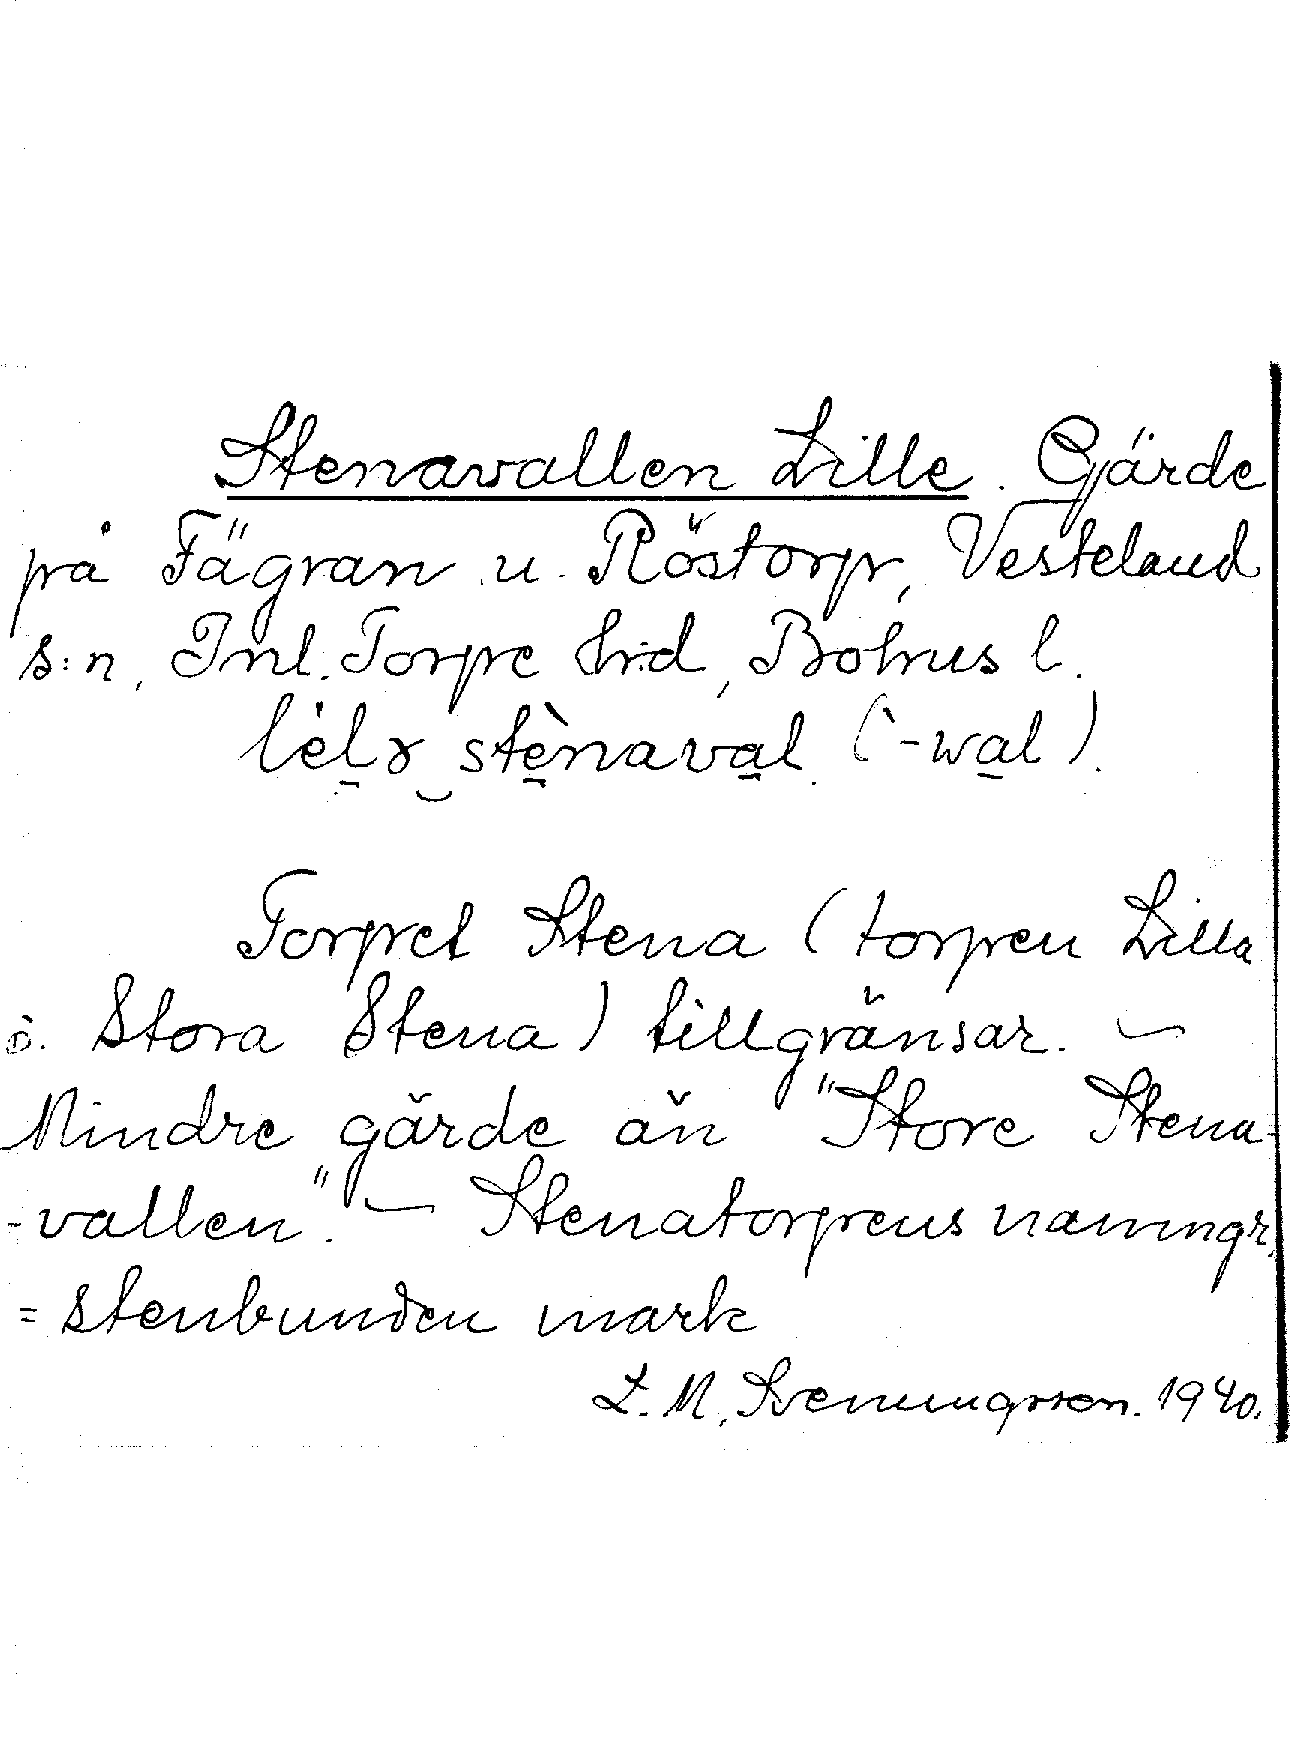 Stenavallen Lille. Gärde
på Fägran u. Röstorp, Vesteland
s:n, Inl. Torpe h:d, Bohus l.
stènaval (-wal).
Torpet Stena (torpen Lilla
o. Stora Stena) tillgränsar. –
Mindre gärde än "Store Stena-
-vallen". – Stenatorpens namngr.
= stenbunden mark
L. M. Svenungsson. 1940.